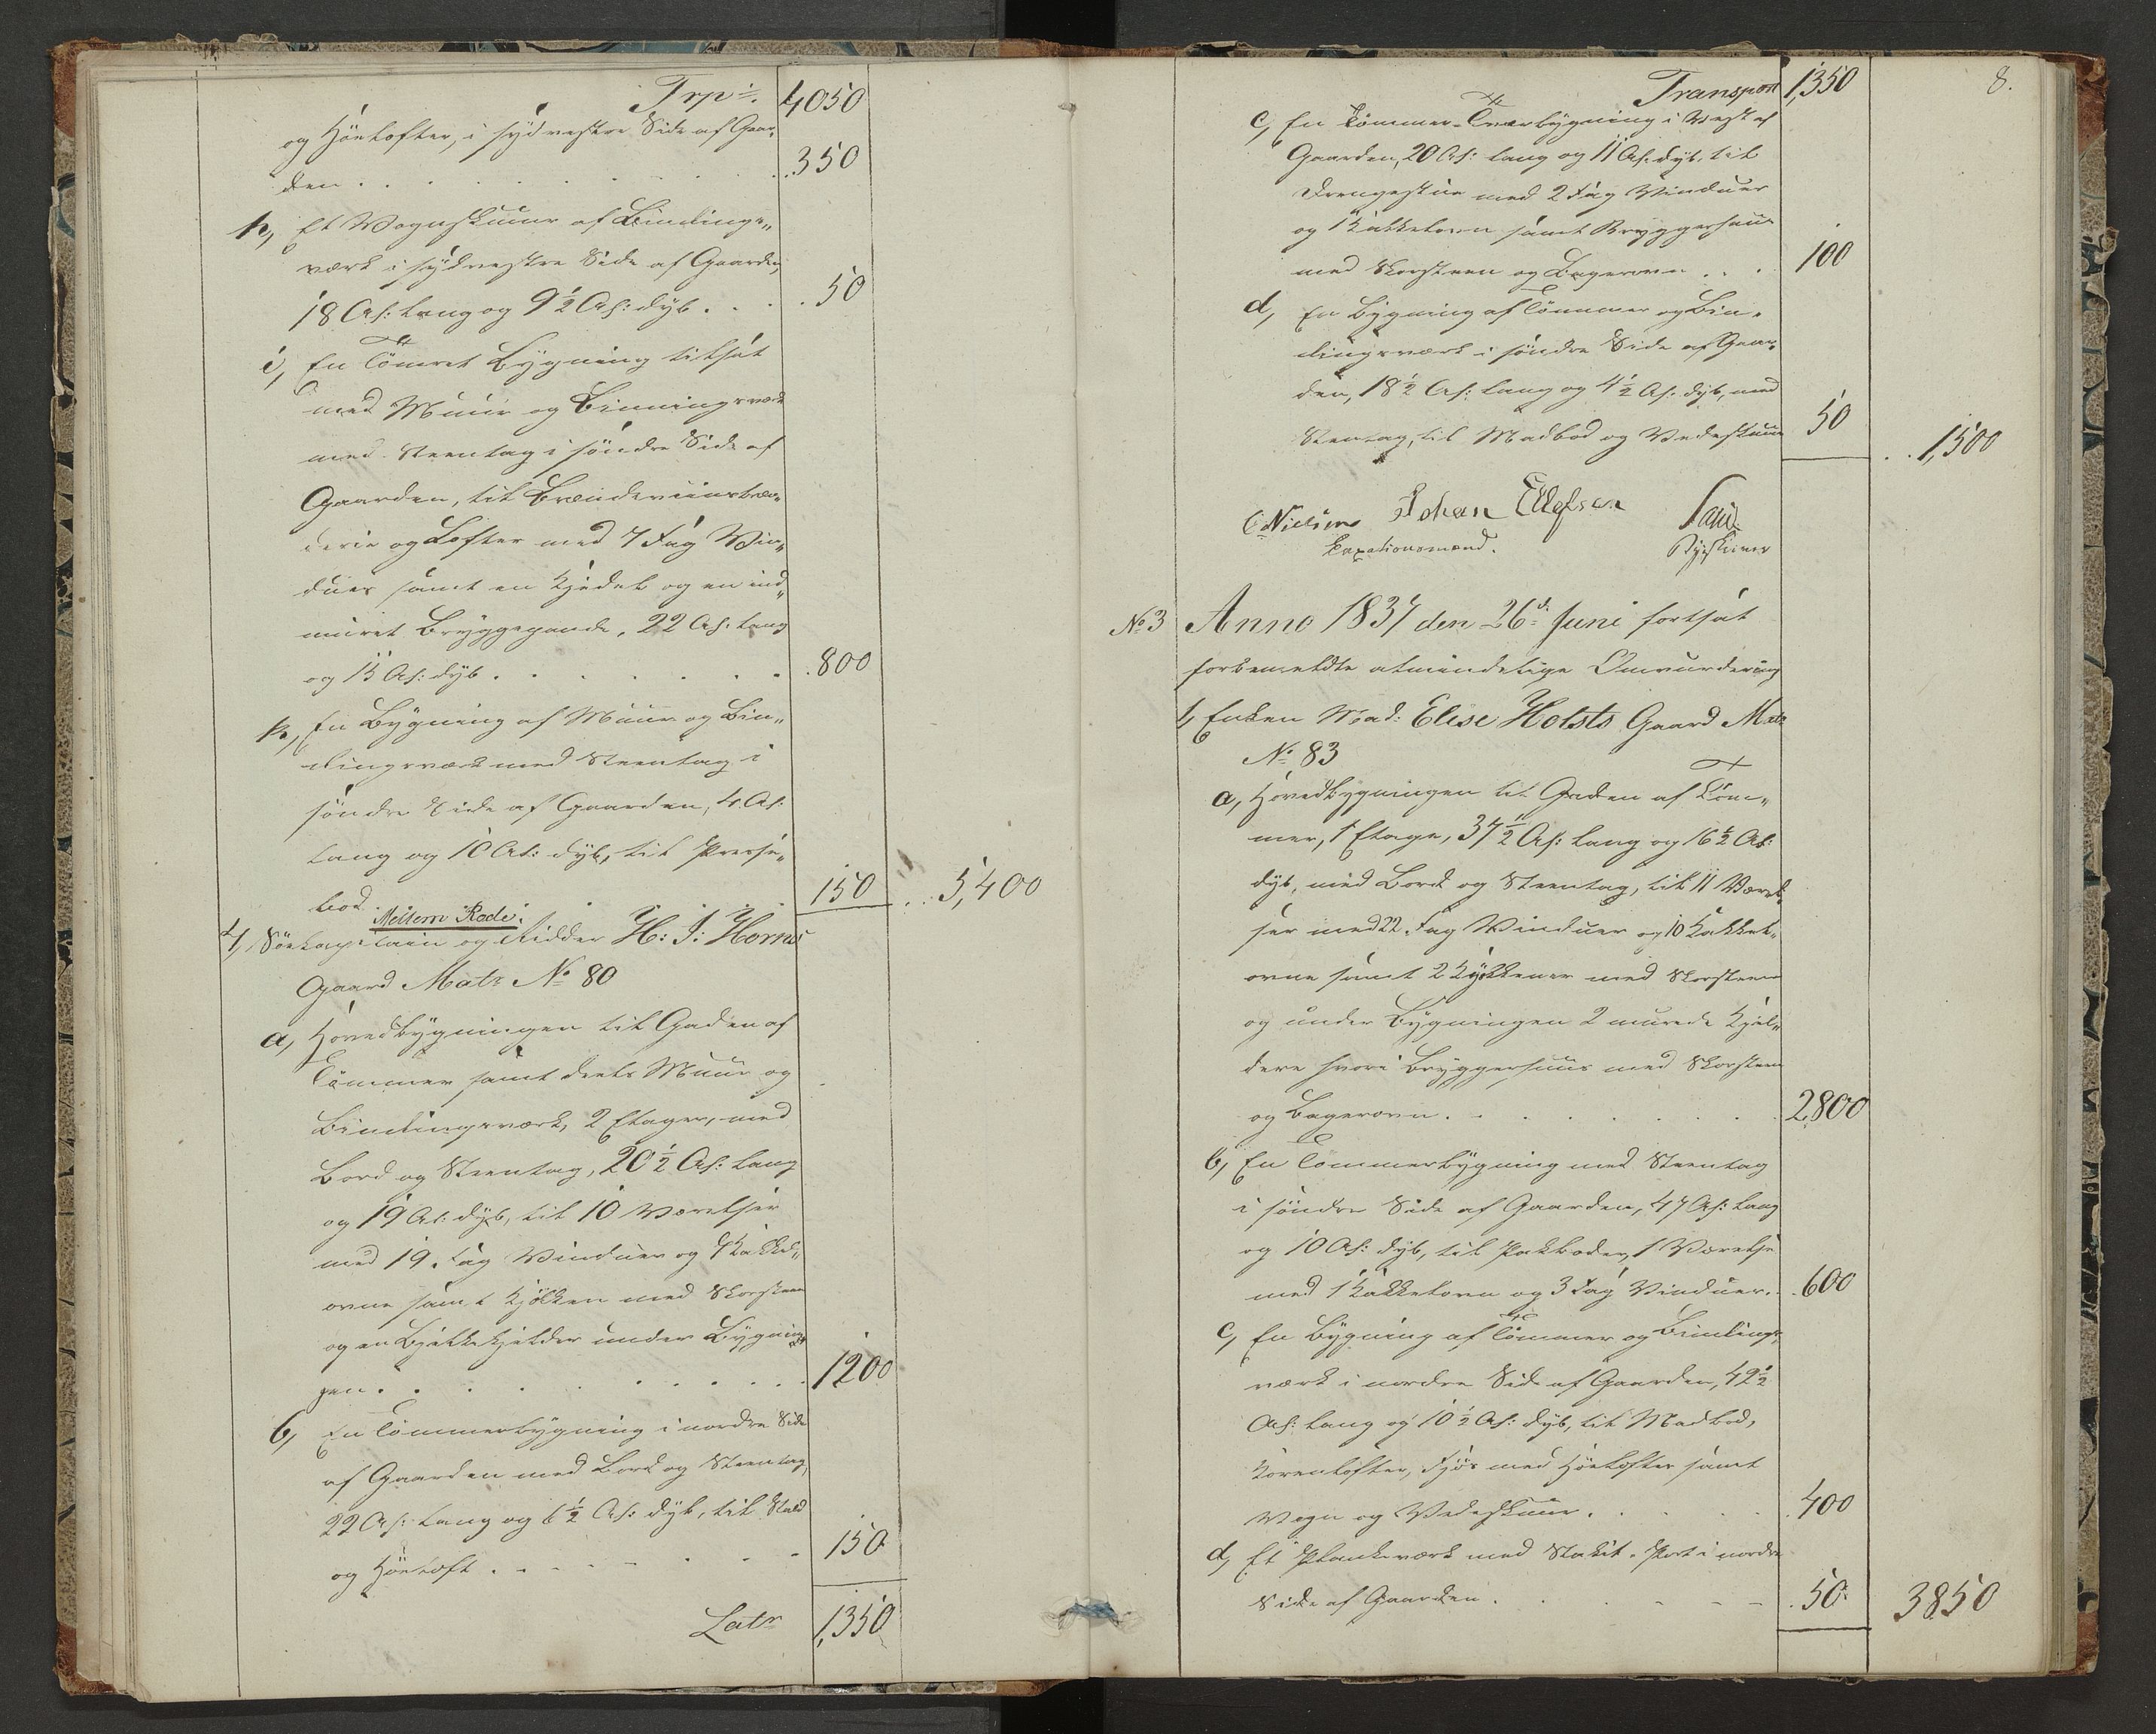 Trp. 4050
og Höelofter, i sydvestre Side af Gaar„
den . . . . . . . 350
h, Et Vognskuur af Bindings„
værk i sydvestre Side af Gaarden,
18 Al: lang og 9½ Al: dyb . . . 50
i, En Tömret Bygning tilsat
med Muur og Bindingsværk
med Steentag i söndre Side af
Gaarden, til Brændeviinsbræn„
derie og Lofter med 7 Fag Vin„
duer samt en Kjedel og en ind„
muret Bryggepande, 22 Al: lang
og 15 Al: dyb . . . . . . 800
k, En Bygning af Muur og Bin„
dingsværk med Steentag i
söndre Side af Gaarden, 4 Al:
lang og 10 Al: dyb, til
bod . . . 150 . . 5,400
Mellem Rode.
4, Söekapitain og Ridder H: J: Horns
Gaard Matr No 80
a, Hovedbygningen til Gaden af
Tömmer samt deels Muur og
Bindingsværk, 2 Etager, med
Bord og Steentag, 20½ Al: lang
og 19 Al: dyb, til 10 Værelser
med 19 Fag Vinduer og 7 Kakkel„
ovne samt Kjökken med Skorsteen
og en Bjelkekjelder under Bygnin„
gen . . . . . . . . 1200
b, En Tömmerbygning i nordre Side
af Gaarden med Bord og Steentag,
22 Al: lang og 6½ Al: dyb, til Stald
og Höeloft . . . . . . 150
Latr 1,350
8.
Transport 1,350
c, En Tömmer-Tværbygning i Vest af
Gaarden, 20 Al: lang og 11 Al: dyb, til
Drengestue med 2 Fag Vinduer
og 1 Kakkelovn samt Bryggerhuus
med Skorsteen og Bagerovn . . . 100
d, En Bygning af Tömmer og Bin„
dingsværk i söndre Side af Gaar„
den, 18½ Al: lang og 4½ Al: dyb, med
Steentag, til Madbod og Vedeskuur 50 . . 1,500
C Nielsen Johan Ellefsen
Taxationsmænd. Byeskriver
No 3 Anno 1837 den 26d Juni fortsat
forbemeldte almindelige Omvurdering
1, Enken Mad: Elise Holsts Gaard Matr
No 83
a, Hovedbygningen til Gaden af Töm„
mer, 1 Etage, 37½ Al: lang og 16½ Al:
dyb, med Bord og Steentag, til 11 Værel„
ser med 22 Fag Vinduer og 10 Kakkel„
ovne samt 2 Kjökkener med Skorsteen
og under Bygningen 2 murede Kjel„
dere hvori Bryggerhuus med Skorsteen
og Bagerovn . . . . . . 2,800
b, En Tömmerbygning med Steentag
i söndre Side af Gaarden, 47 Al: lang
og 10 Al: dyb, til Pakboder, 1 Værelse
med 1 Kakkelovn og 3 Fag Vinduer. . 600
c, En Bygning af Tömmer og Bindings„
værk i nordre Side af Gaarden, 42½
Al: lang og 10½ Al: dyb, til Madbod,
Kornlofter, Fjös med Höelofter samt
Vogn og Vedeskuur . . . . . 400
d, Et Plankeværk med Stakit-Port i nordre
Side af Gaarden . . . . . . 50 3850